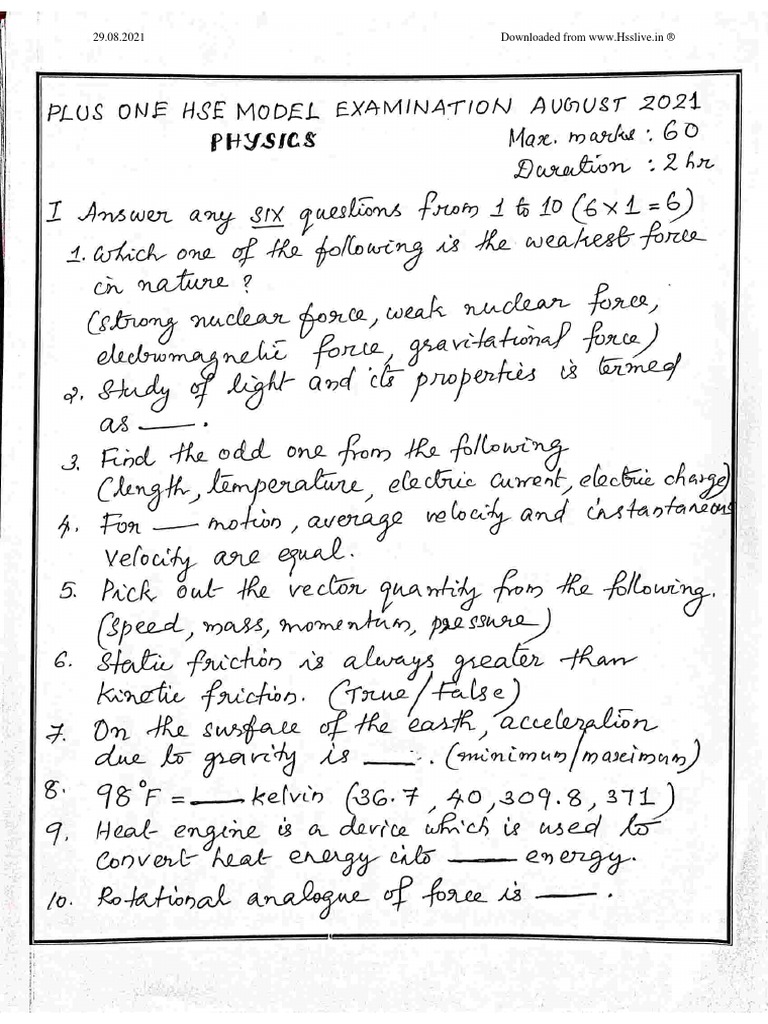 29.08.2021 Downloaded from www.Hsslive.in ®
PLUS ONE HSE MODEL EXAMINATION AUGUST 2021
PHYSICS Max. marks : 60
Duration : 2 hr
I Answer any SIX questions from 1 to 10 (6 x 1 = 6)
1. Which one of the following is the weakest force
in nature ?
(strong nuclear force, weak nuclear force,
electromagnetic force, gravitational force)
2. Study of light and its properties is termed
as ___.
3. Find the odd one from the following
(length, temperature, electric current, electric charge)
4. For ___ motion, average velocity and instantaneous
velocity are equal.
5. Pick out the vector quantity from the following.
(speed, mass, momentum, pressure)
6. Static friction is always greater than
kinetic friction. (True/False)
7. On the surface of the earth, acceleration
due to gravity is ___. (minimum/maximum)
8. 98°F = ___ kelvin (36.7, 40, 309.8, 371)
9. Heat engine is a device which is used to
convert heat energy into ___ energy.
10. Rotational analogue of force is ___.